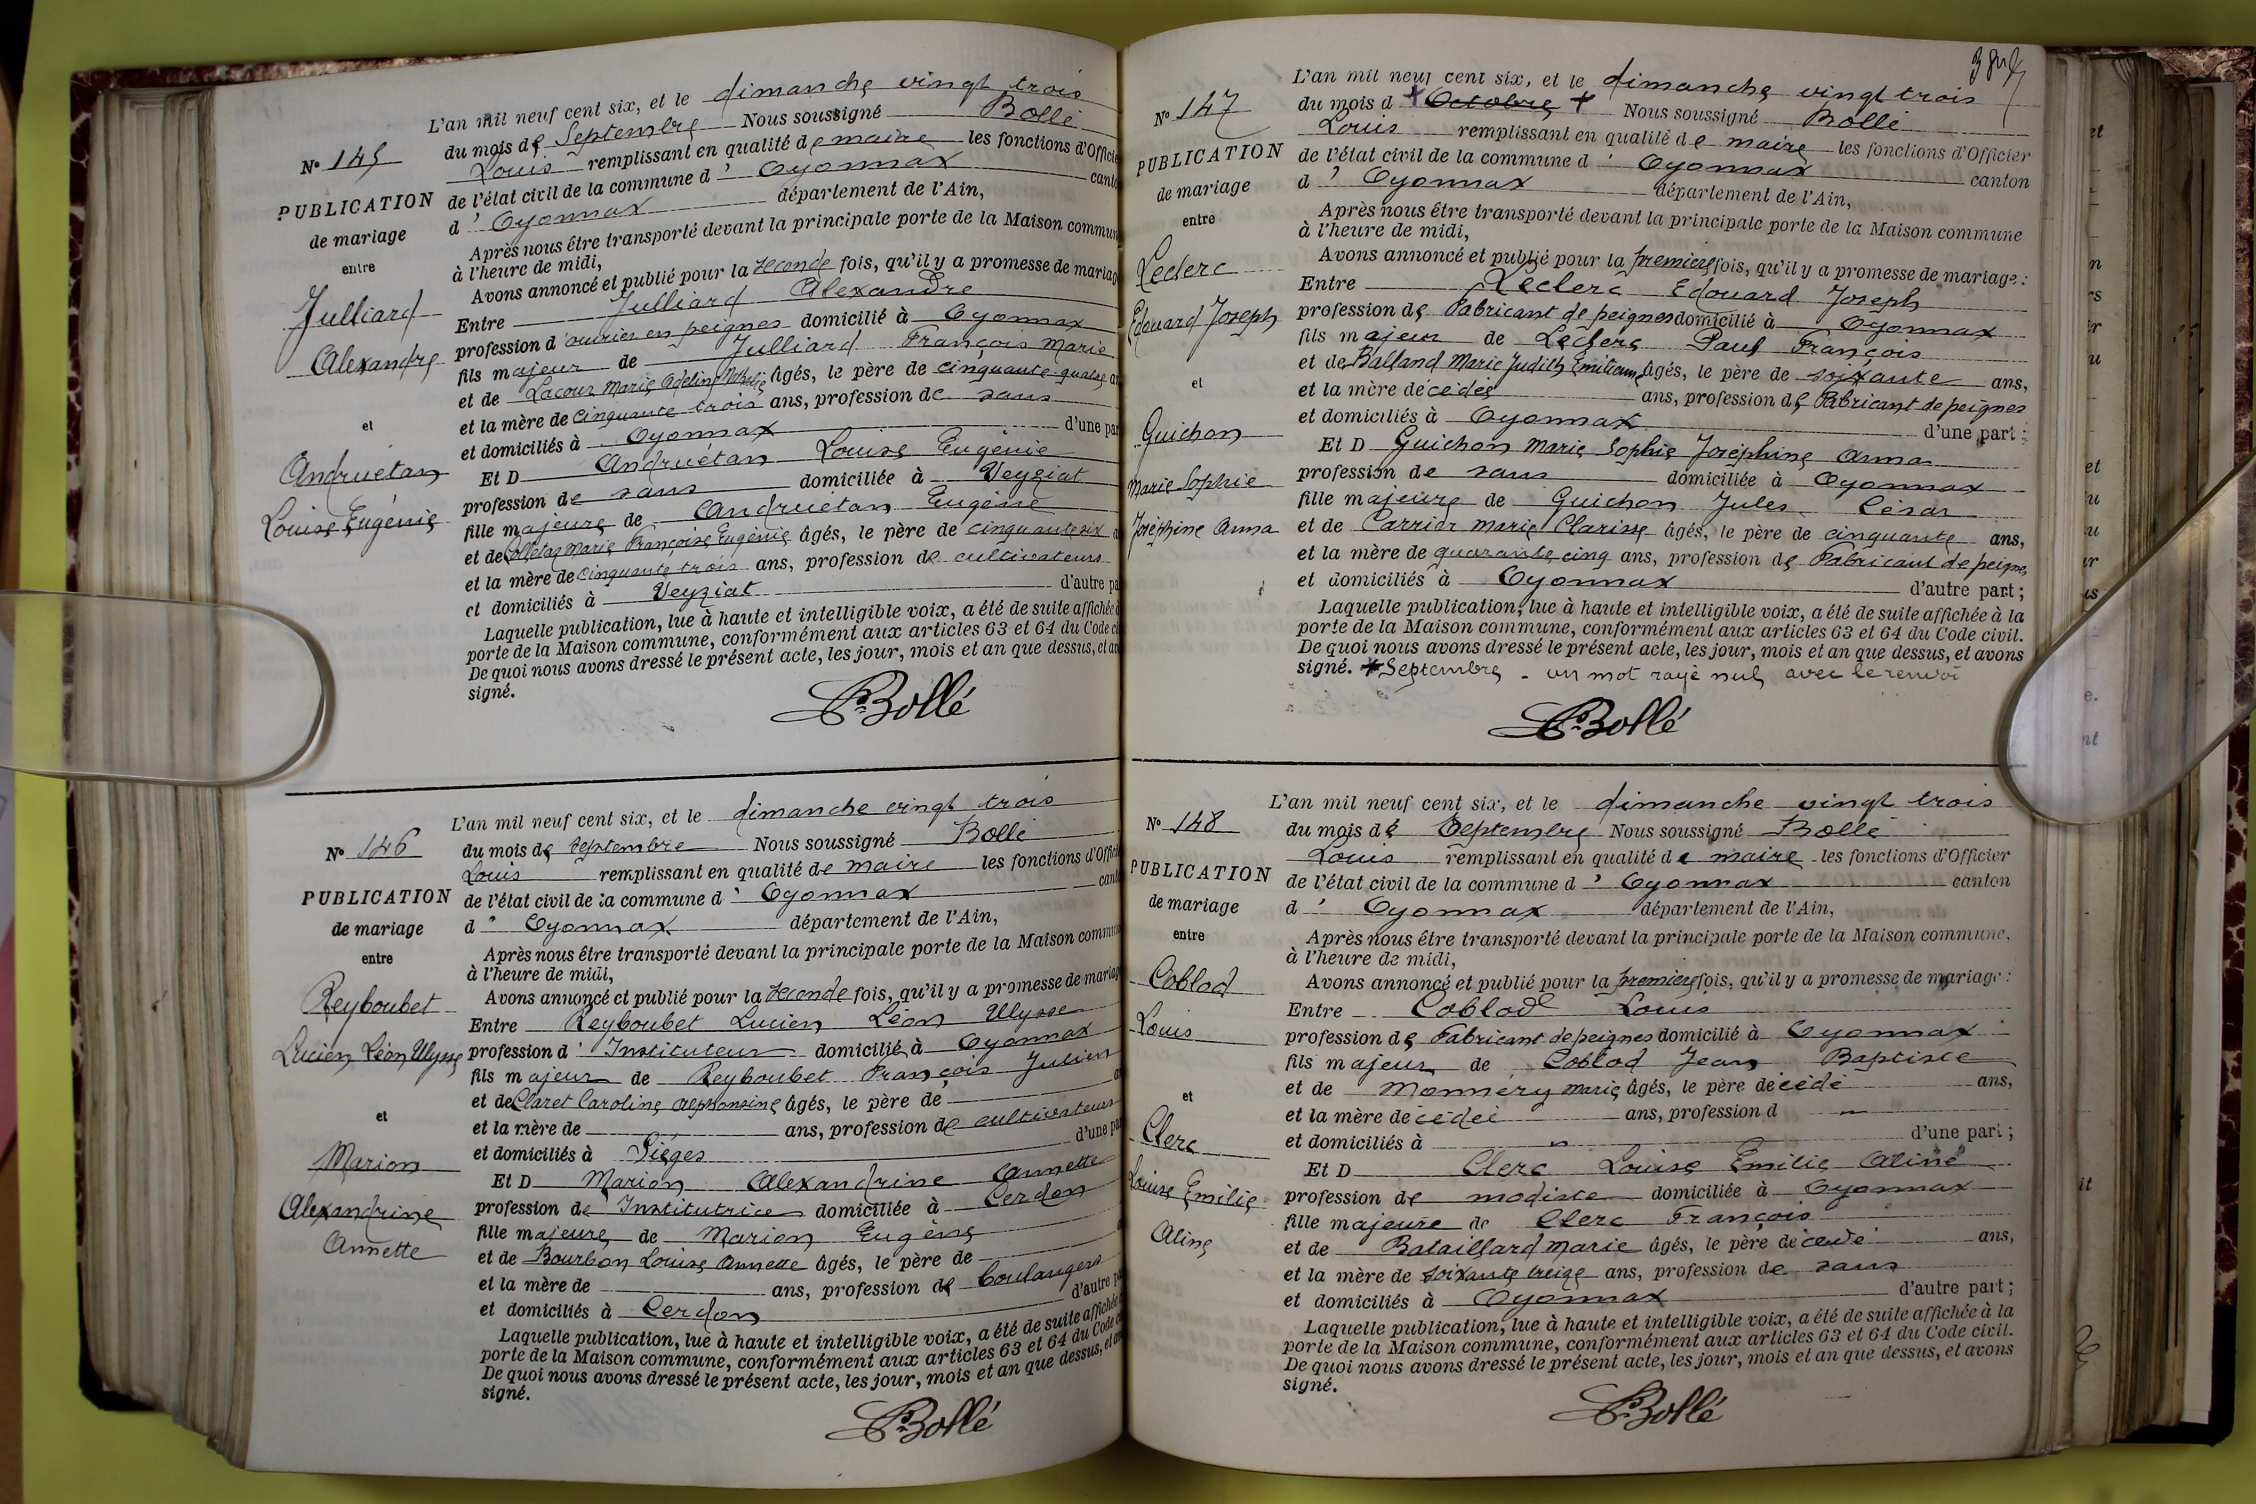 L'an mil neuf cent six, et le dimanche vingt trois
du mois de Septembre Nous soussigné Bollé
Louis remplissant en qualité de maire les fonctions d'Officie
de l'état civil de la commune d' Oyonnax canto
d' Oyonnax département de l'Ain,
Après nous être transporté devant la principale porte de la Maison commun
à l'heure de midi,
Avons annoncé et publié pour la seconde fois, qu'il y a promesse de mariag
Entre Julliard Alexandre
profession d'ouvrier en peignes domicilié à Oyonnax
fils majeur de Julliard François Marie
et de Lacour Marie Adeline âgés, le père de cinquante quatre an
et la mère de cinquante trois ans, profession de sans
et domiciliés à Oyonnax d'une par
Et D Andruétan Louise Eugénie
profession de sans domiciliée à Veyziat
fille majeure de Andruétan Eugène
et de Colletaz Marie Françoise Eugénie âgés, le père de cinquante six a
et la mère de cinquante trois ans, profession de cultivateurs
et domiciliés à Veyziat d'autre pa
Laquelle publication, lue à haute et intelligible voix, a été de suite affichée à
porte de la Maison commune, conformément aux articles 63 et 64 du Code ci
De quoi nous avons dressé le présent acte, les jour, mois et an que dessus, et av
signé.
Bollé
N° 145
PUBLICATION
de mariage
entre
Julliard
Alexandre
et
Andruétan
Louise Eugénie
L'an mil neuf cent six, et le dimanche vingt trois
du mois de Septembre Nous soussigné Bollé
Louis remplissant en qualité de maire les fonctions d'Offici
de l'état civil de la commune d' Oyonnax cant
d' Oyonnax département de l'Ain,
Après nous être transporté devant la principale porte de la Maison commun
à l'heure de midi,
Avons annoncé et publié pour la seconde fois, qu'il y a promesse de mariag
Entre Reyboubet Lucien Léon Ulysse
profession d' Instituteur domicilié à Oyonnax
fils majeur de Reyboubet François Julien
et de Claret Caroline Alphonsine âgés, le père de a
et la mère de ans, profession de cultivateurs
et domiciliés à Siéges d'une pa
Et D Marion Alexandrine Annette
profession de Institutrice domiciliée à Cerdon
fille majeure de Marion Eugène
et de Bourbon Louise Annette âgés, le père de
et la mère de ans, profession de boulangers
et domiciliés à Cerdon d'autre pa
Laquelle publication, lue à haute et intelligible voix, a été de suite affichée
porte de la Maison commune, conformément aux articles 63 et 64 du Code c
De quoi nous avons dressé le présent acte, les jour, mois et an que dessus, et av
signé.
Bollé
N° 146
PUBLICATION
de mariage
entre
Reyboubet
Lucien Léon Ulysse
et
Marion
Alexandrine
Annette
L'an mil neuf cent six, et le dimanche vingt trois
du mois d + Octobre + Nous soussigné Bollé
Louis remplissant en qualité de maire les fonctions d'Officier
de l'état civil de la commune d' Oyonnax canton
d' Oyonnax département de l'Ain,
Après nous être transporté devant la principale porte de la Maison commune
à l'heure de midi,
Avons annoncé et publié pour la première fois, qu'il y a promesse de mariage :
Entre Leclerc Edouard Joseph
profession de Fabricant de peignes domicilié à Oyonnax
fils majeur de Leclerc Paul François
et de Balland Marie Judith Emilienne âgés, le père de soixante ans,
et la mère décédée ans, profession de Fabricant de peignes
et domiciliés à Oyonnax d'une part ;
Et D Guichon Marie Sophie Joséphine Anna
profession de sans domiciliée à Oyonnax
fille majeure de Guichon Jules César
et de Carrier Marie Clarisse âgés, le père de cinquante ans,
et la mère de quarante cinq ans, profession de Fabricant de peignes
et domiciliés à Oyonnax d'autre part ;
Laquelle publication, lue à haute et intelligible voix, a été de suite affichée à la
porte de la Maison commune, conformément aux articles 63 et 64 du Code civil.
De quoi nous avons dressé le présent acte, les jour, mois et an que dessus, et avons
signé. + Septembre - un mot rayé nul, avec le renvoi
Bollé
N° 147
PUBLICATION
de mariage
entre
Leclerc
Edouard Joseph
et
Guichon
Marie Sophie
Joséphine Anna
L'an mil neuf cent six, et le dimanche vingt trois
du mois de Septembre Nous soussigné Bollé
Louis remplissant en qualité de maire les fonctions d'Officier
de l'état civil de la commune d' Oyonnax canton
d' Oyonnax département de l'Ain,
Après nous être transporté devant la principale porte de la Maison commune,
à l'heure de midi,
Avons annoncé et publié pour la première fois, qu'il y a promesse de mariage :
Entre Coblod Louis
profession de Fabricant de peignes domicilié à Oyonnax
fils majeur de Coblod Jean Baptiste
et de Monnery Marie âgés, le père décédé ans,
et la mère décédée ans, profession d
et domiciliés à d'une part ;
Et D Clerc Louise Emilie Aline
profession de modiste domiciliée à Oyonnax
fille majeure de Clerc François
et de Bataillard Marie âgés, le père décédé ans,
et la mère de soixante treize ans, profession de sans
et domiciliés à Oyonnax d'autre part ;
Laquelle publication, lue à haute et intelligible voix, a été de suite affichée à la
porte de la Maison commune, conformément aux articles 63 et 64 du Code civil.
De quoi nous avons dressé le présent acte, les jour, mois et an que dessus, et avons
signé.
Bollé
N° 148
PUBLICATION
de mariage
entre
Coblod
Louis
et
Clerc
Louise Emilie
Aline